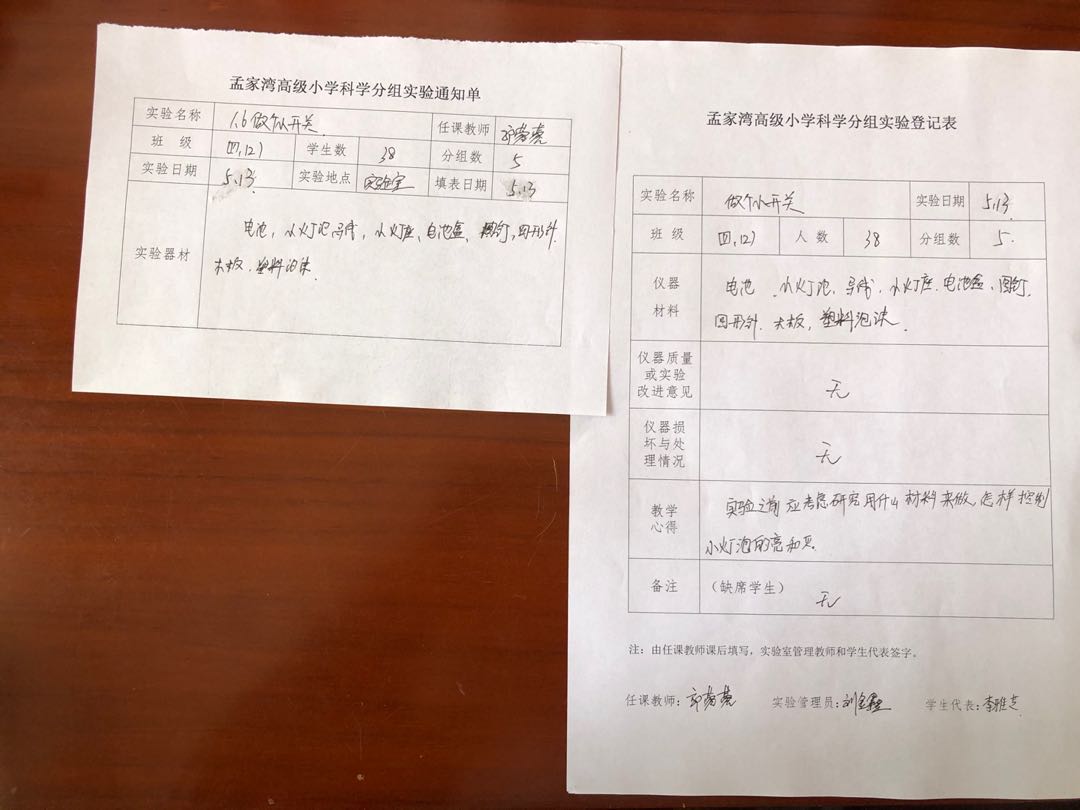 孟家湾高级小学科学分组实验通知单
实验名称 1.6做个小开关 任课教师
班 级 四,(2) 学生数 38 分组数 5
实验日期 5.13 实验地点 实验室 填表日期 5.13
实验器材
电池,小灯泡导线,小灯座、电池盒、图钉,回形针
木板、塑料泡沫.
孟家湾高级小学科学分组实验登记表
实验名称 做个小开关 实验日期 5.13
班 级 四,(2) 人 数 38 分组数 5.
仪器
材料
电池 、小灯泡、导线,小灯座.电池盒、图钉,
回形针.木板,塑料泡沫.
仪器质量
或实验
改进意见
无
仪器损
坏与处
理情况
无
教学
心得
实验之前应考虑研究用什么材料来做,怎样控制
小灯泡的亮和灭.
备注 (缺席学生) 无
注:由任课教师课后填写,实验室管理教师和学生代表签字。
任课教师: 实验管理员: 学生代表:李雅芝